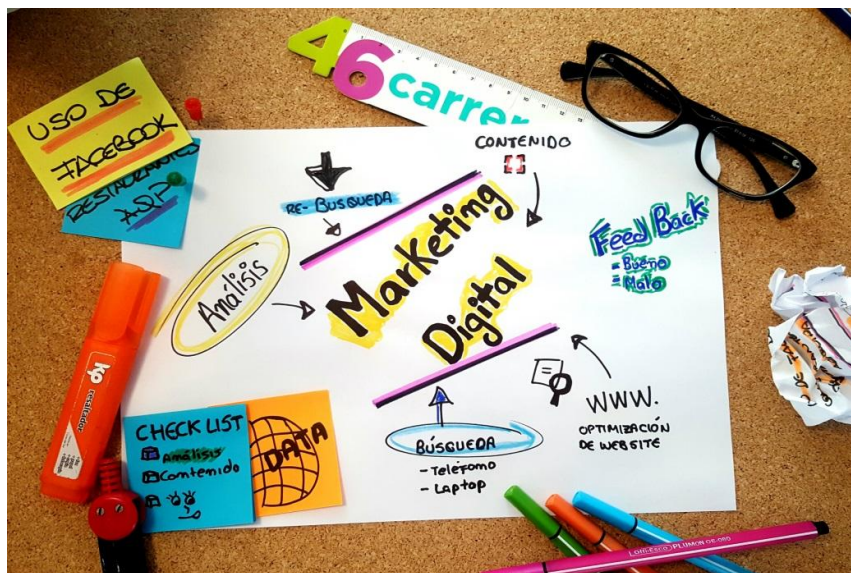 46
carrer
USO DE
FACEBOOK
RESTAURANTES
AQP
CONTENIDO
RE-BUSQUEDA
Análisis
Marketing
Digital
Feed Back
- Bueno
- Malo
WWW.
OPTIMIZACIÓN
DE WEBSITE
BÚSQUEDA
- Teléfono
- Laptop
CHECK LIST
Análisis
Contenido
DATA
kp
resaltador
PLUMON 06-960